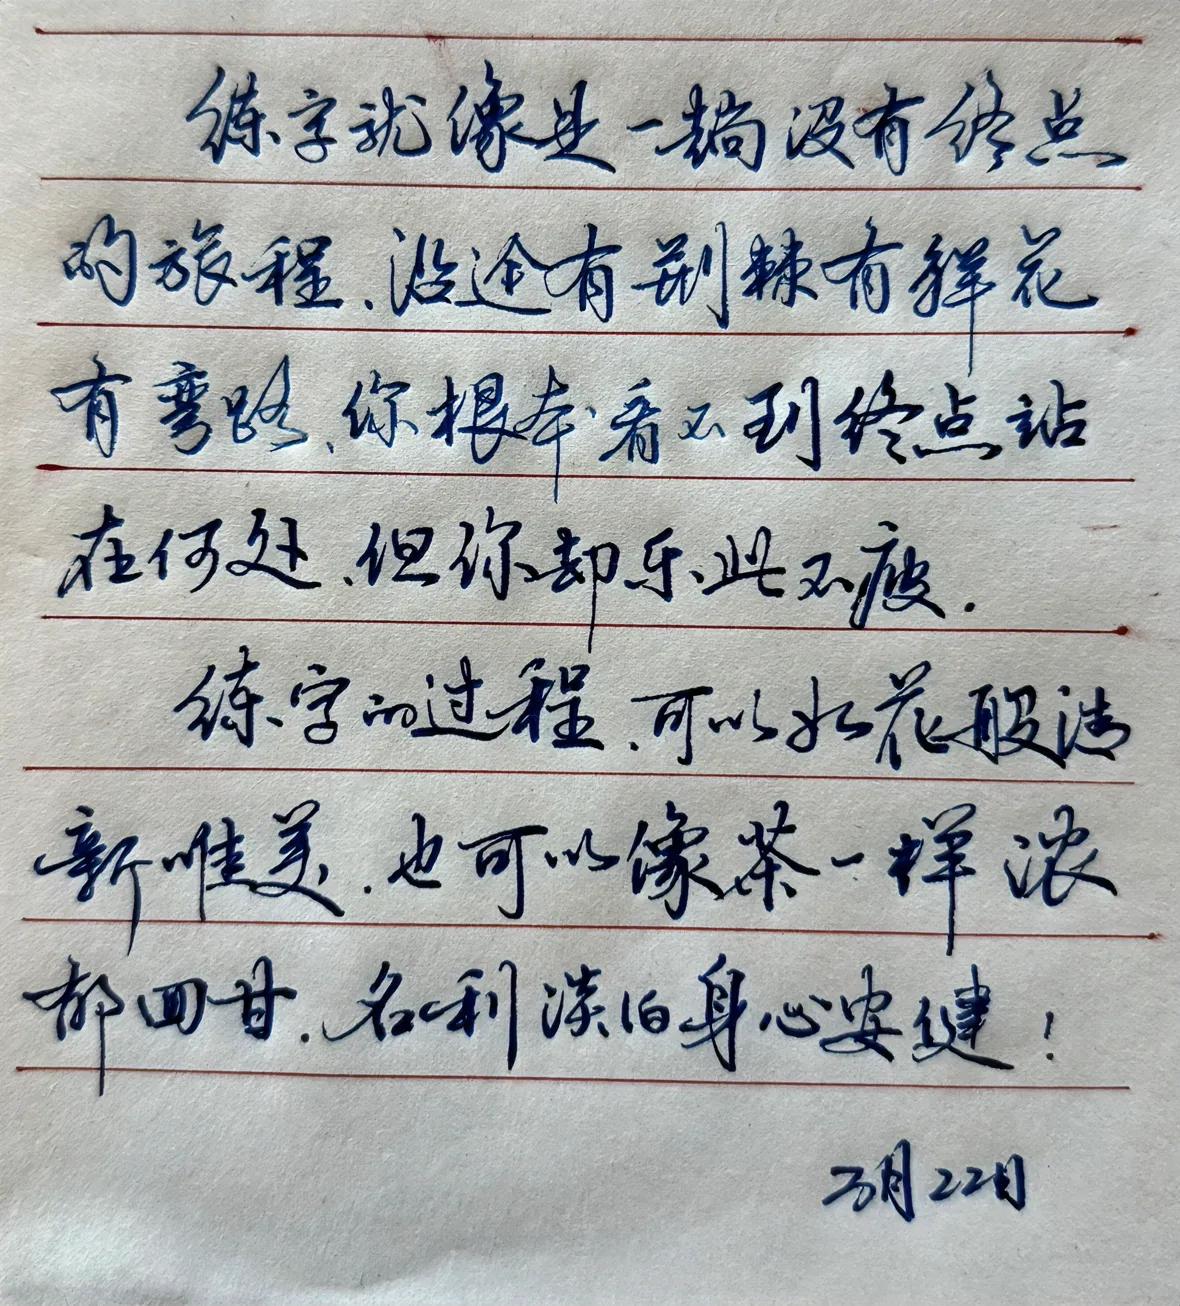 练字就像是一趟没有终点
的旅程、沿途有荆棘有鲜花
有弯路、你根本看不到终点站
在何处、但你却乐此不疲.
练字的过程、可以如花般清
新唯美、也可以像茶一样浓
郁回甘.名利淡泊身心安健！
3月22日